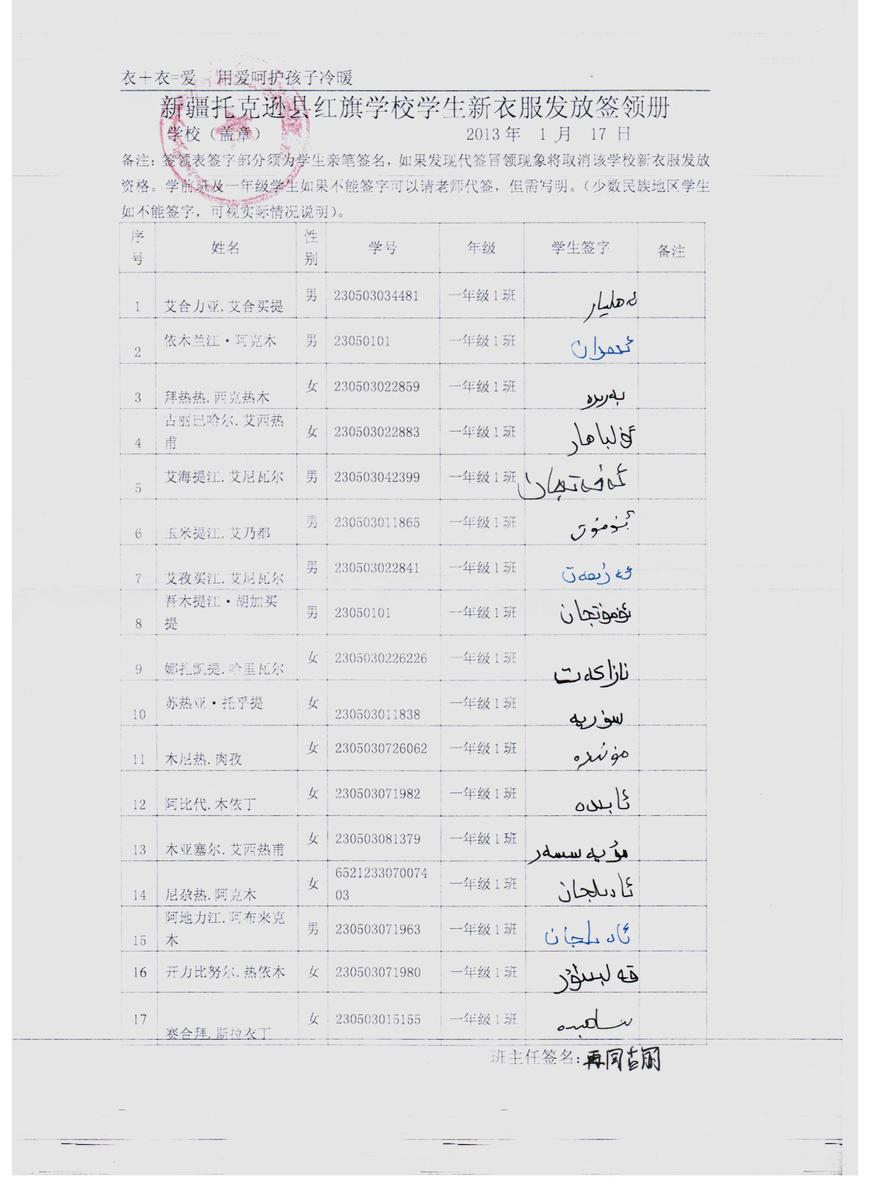 衣+衣=爱 用爱呵护孩子冷暖
新疆托克逊县红旗学校学生新衣服发放签领册
学校（盖章） 2013年 1月 17日
备注：签领表签字部分须为学生亲笔签名，如果发现代签冒领现象将取消该学校新衣服发放
资格。学前班及一年级学生如果不能签字可以请老师代签，但需写明。（少数民族地区学生
如不能签字，可视实际情况说明）。
序号 姓名 性别 学号 年级 学生签字 备注
1 艾合力亚.艾合买提 男 230503034481 一年级1班 ئەھليار
2 依木兰江·阿克木 男 23050101 一年级1班
3 拜热热.西克热木 女 230503022859 一年级1班 بەررە
4 古丽巴哈尔.艾西热甫 女 230503022883 一年级1班
5 艾海提江.艾尼瓦尔 男 230503042399 一年级1班
6 玉米提江.艾乃都 男 230503011865 一年级1班
7 艾孜买江.艾尼瓦尔 男 230503022841 一年级1班
8 吾木提江·胡加买提 男 23050101 一年级1班 ئۈمۈتجان
9 娜扎凯提.哈里瓦尔 女 2305030226226 一年级1班 نازاكەت
10 苏热亚·托乎提 女 230503011838 一年级1班 سۈريە
11 木尼热.肉孜 女 2305030726062 一年级1班 مۇنىرە
12 阿比代.木依丁 女 230503071982 一年级1班 ئابىدە
13 木亚塞尔.艾西热甫 女 230503081379 一年级1班 مۇيەسسەر
14 尼尕热.阿克木 女 652123307007403 一年级1班 ئادىلجان
15 阿地力江.阿布来克木 男 230503071963 一年级1班 ئادىلجان
16 开力比努尔.热依木 女 230503071980 一年级1班
17 赛合拜.斯拉衣丁 女 230503015155 一年级1班
班主任签名：再同古丽